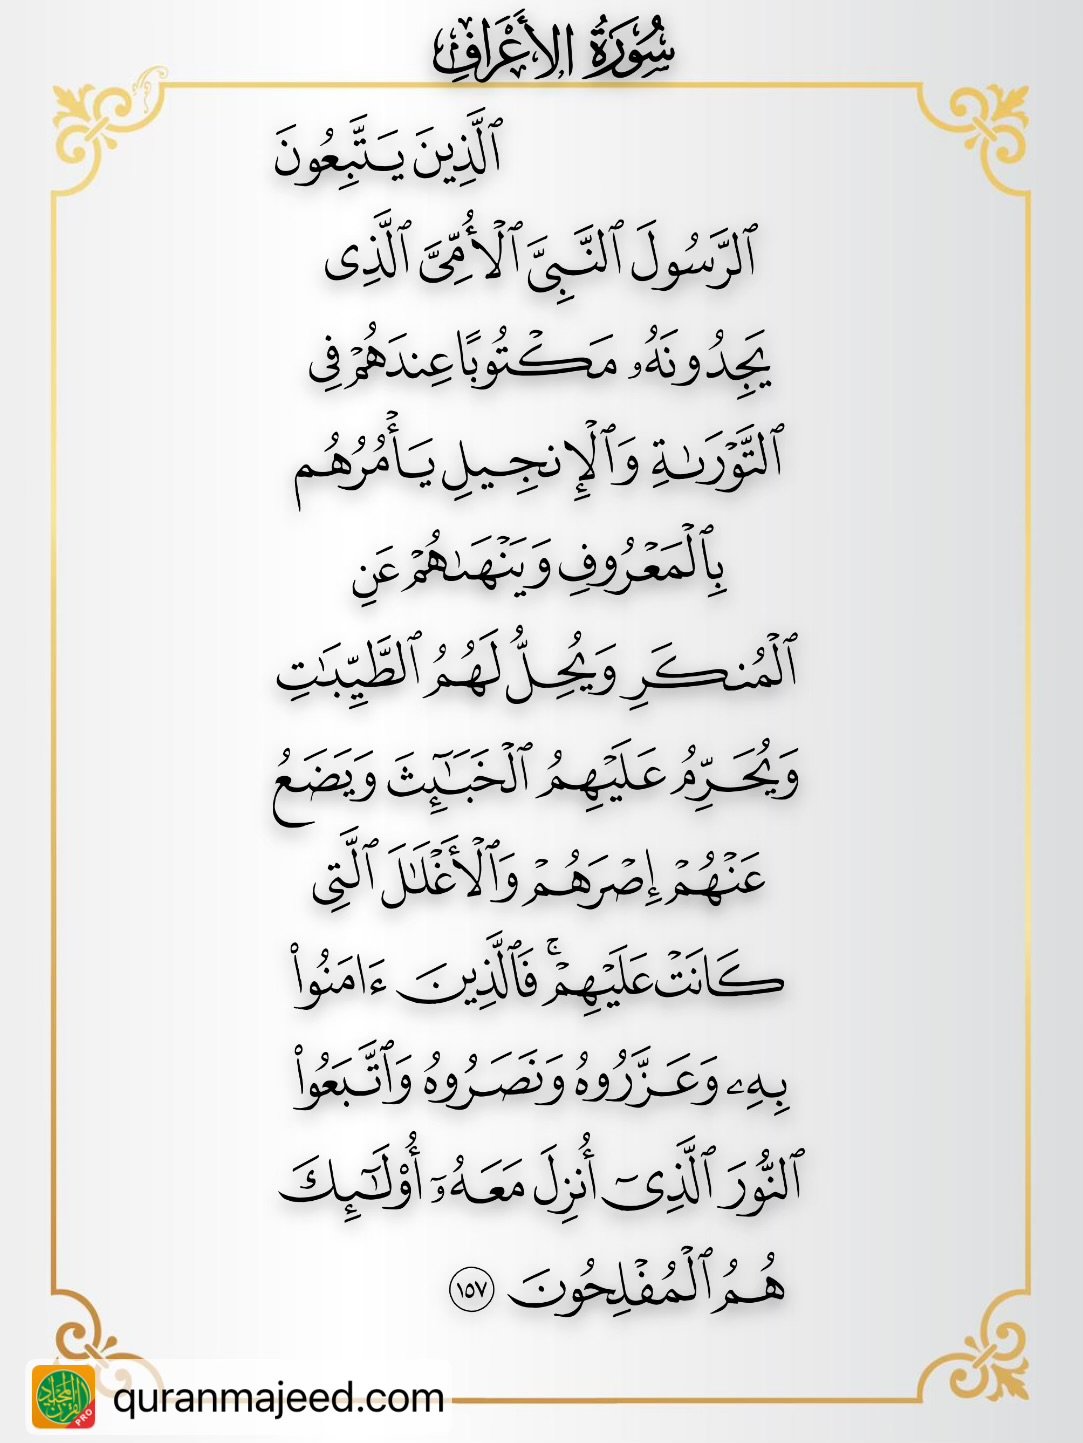 سُورَةُ الأَعْرَافِ
ٱلَّذِينَ يَتَّبِعُونَ
ٱلرَّسُولَ ٱلنَّبِىَّ ٱلْأُمِّىَّ ٱلَّذِى
يَجِدُونَهُۥ مَكْتُوبًا عِندَهُمْ فِى
ٱلتَّوْرَىٰةِ وَٱلْإِنجِيلِ يَأْمُرُهُم
بِٱلْمَعْرُوفِ وَيَنْهَىٰهُمْ عَنِ
ٱلْمُنكَرِ وَيُحِلُّ لَهُمُ ٱلطَّيِّبَـٰتِ
وَيُحَرِّمُ عَلَيْهِمُ ٱلْخَبَـٰٓئِثَ وَيَضَعُ
عَنْهُمْ إِصْرَهُمْ وَٱلْأَغْلَـٰلَ ٱلَّتِى
كَانَتْ عَلَيْهِمْ ۚ فَٱلَّذِينَ ءَامَنُوا۟
بِهِۦ وَعَزَّرُوهُ وَنَصَرُوهُ وَٱتَّبَعُوا۟
ٱلنُّورَ ٱلَّذِىٓ أُنزِلَ مَعَهُۥٓ أُو۟لَـٰٓئِكَ
هُمُ ٱلْمُفْلِحُونَ ١٥٧
القرآن المجيد
PRO
quranmajeed.com